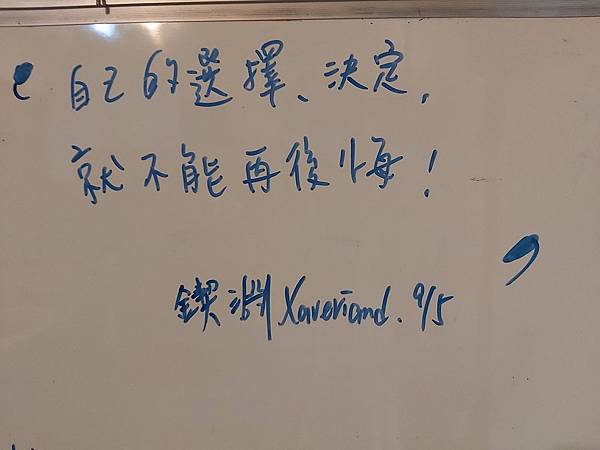 自己的選擇、決定,
就不能再後悔!
鍥淵 Xaveriand. 9/5